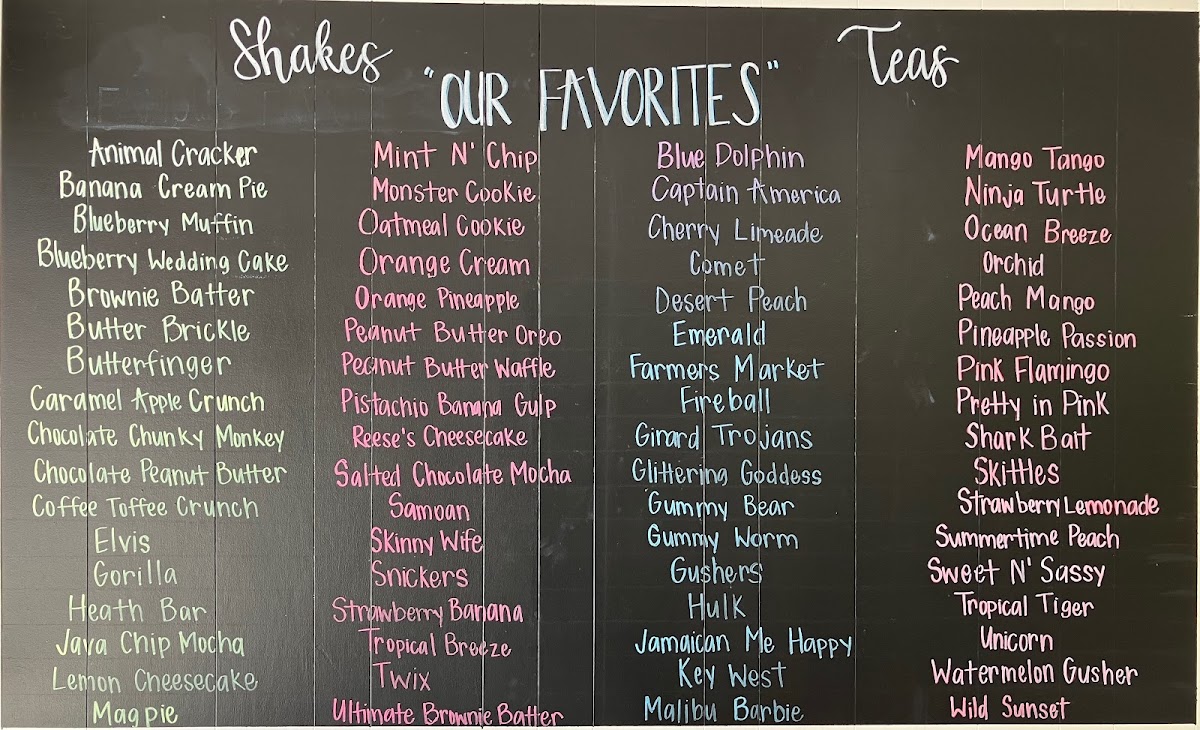 Shakes
"OUR FAVORITES"
Teas
Animal Cracker
Banana Cream Pie
Blueberry Muffin
Blueberry Wedding Cake
Brownie Batter
Butter Brickle
Butterfinger
Caramel Apple Crunch
Chocolate Chunky Monkey
Chocolate Peanut Butter
Coffee Toffee Crunch
Elvis
Gorilla
Heath Bar
Java Chip Mocha
Lemon Cheesecake
Magpie
Mint N' Chip
Monster Cookie
Oatmeal Cookie
Orange Cream
Orange Pineapple
Peanut Butter Oreo
Peanut Butter Waffle
Pistachio Banana Gulp
Reese's Cheesecake
Salted Chocolate Mocha
Samoan
Skinny Wife
Snickers
Strawberry Banana
Tropical Breeze
Twix
Ultimate Brownie Batter
Blue Dolphin
Captain America
Cherry Limeade
Comet
Desert Peach
Emerald
Farmers Market
Fireball
Girard Trojans
Glittering Goddess
Gummy Bear
Gummy Worm
Gushers
Hulk
Jamaican Me Happy
Key West
Malibu Barbie
Mango Tango
Ninja Turtle
Ocean Breeze
Orchid
Peach Mango
Pineapple Passion
Pink Flamingo
Pretty in Pink
Shark Bait
Skittles
Strawberry Lemonade
Summertime Peach
Sweet N' Sassy
Tropical Tiger
Unicorn
Watermelon Gusher
Wild Sunset